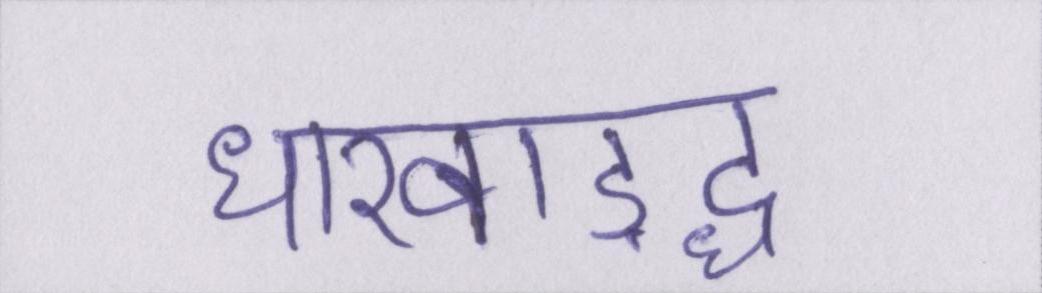 धारवाड़द्ध